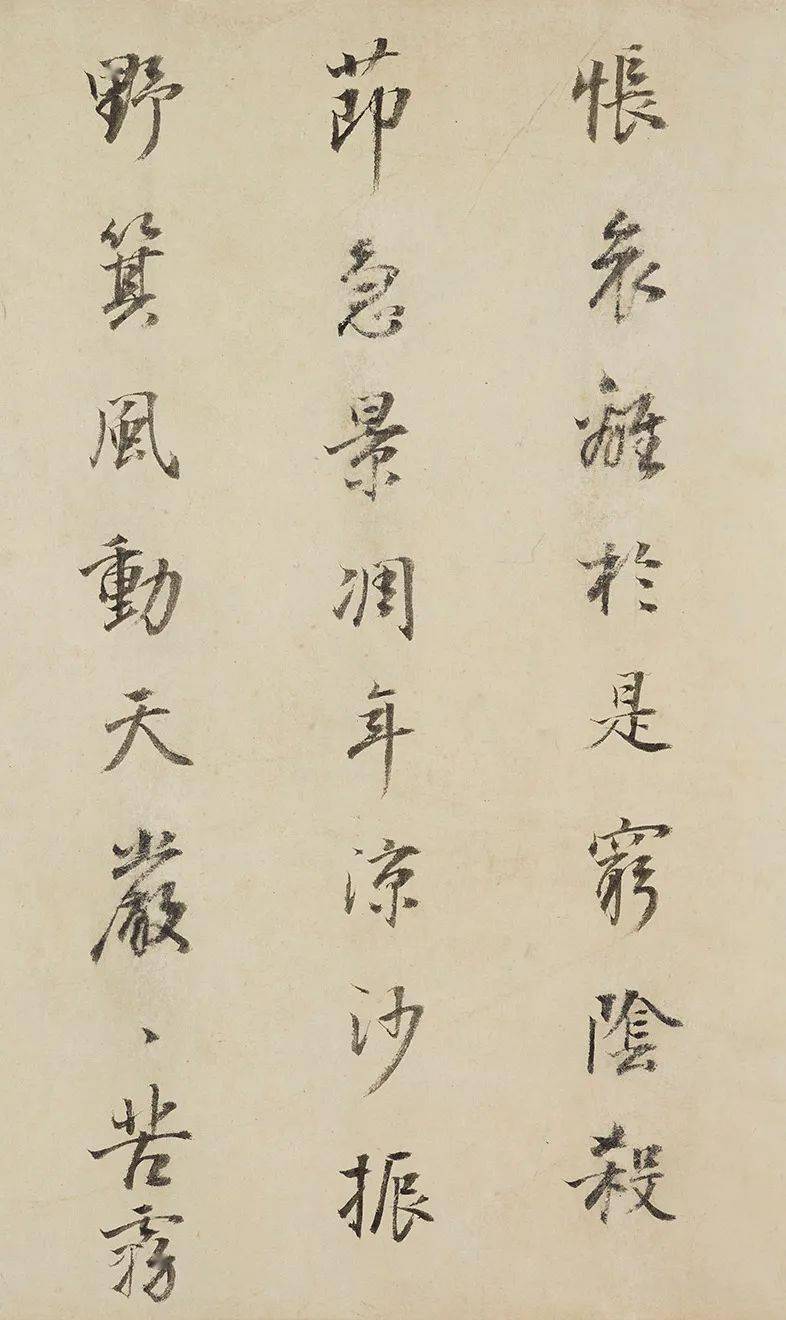 悵哀離於是窮陰殺
莭急景凋年涼沙振
野箕風動天嚴丶苦霧